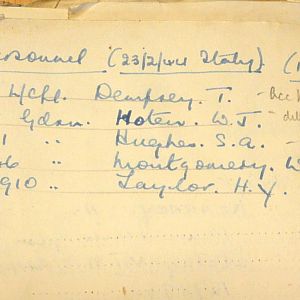 ersonnel (23/2/44 Italy). (1
L/Cpl. Dempsey. T. -
Gdsn. Hoten. W.J.
1 " Hughes. S.A. -
46 " Montgomery. W
910 " Taylor. H.Y.